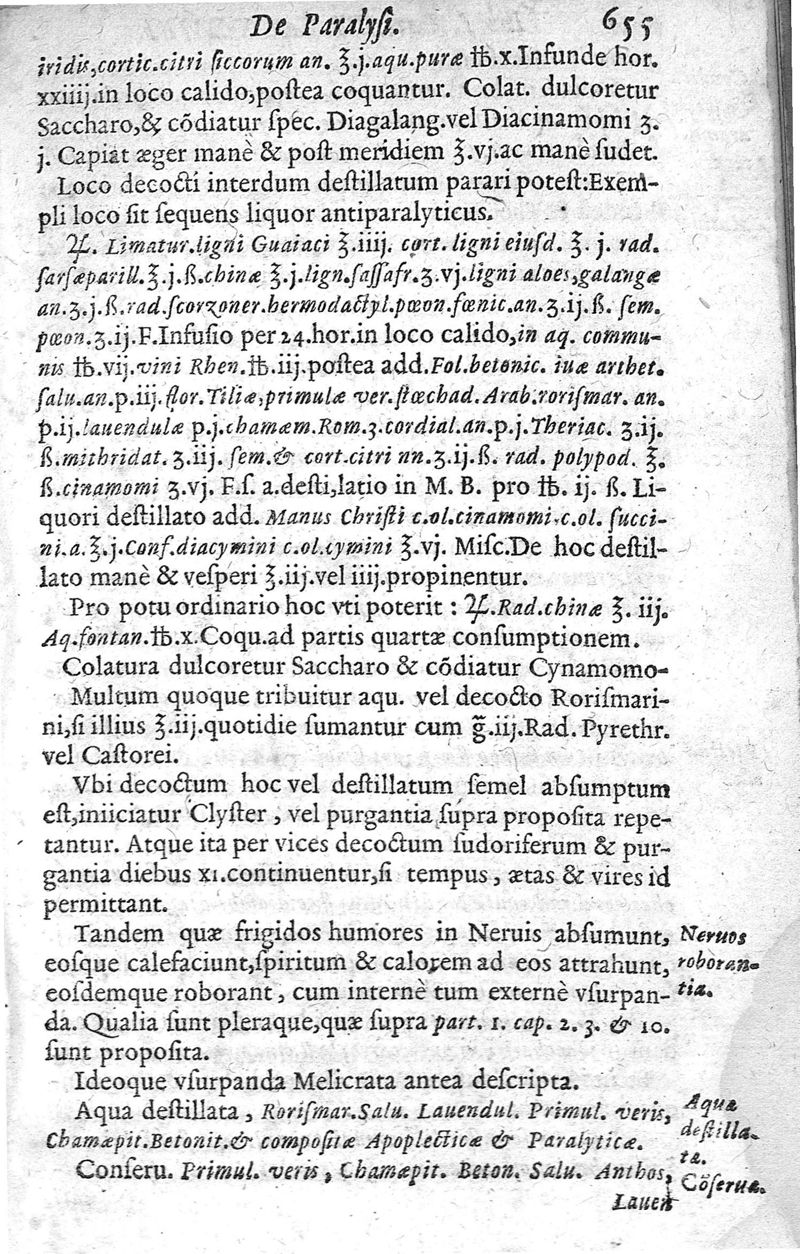 De Paralyſi. 655
iridis,cortic.citri ſiccorum an. ℥.j.aqu.puræ ℔.x.Infunde hor.
xxiiij.in loco calido,poſtea coquantur. Colat. dulcoretur
Saccharo,& cõdiatur ſpec. Diagalang.vel Diacinamomi ʒ.
j. Capiat æger manè & poſt meridiem ℥.vj.ac manè ſudet.
Loco decocti interdum deſtillatum parari poteſt:Exem-
pli loco ſit ſequens liquor antiparalyticus.
♃. Limatur.ligni Guaiaci ℥.iiij. cort. ligni eiuſd. ℥. j. rad.
ſarſæparill.℥.j.ß.chinæ ℥.j.lign.ſaſſafr.ʒ.vj.ligni aloes,galangæ
an.ʒ.j.ß.rad.ſcorzoner.hermodactyl.pœon.fœnic.an.ʒ.ij.ß. ſem.
pœon.ʒ.ij.F.Infuſio per 24.hor.in loco calido,in aq. commu-
nis ℔.vij.vini Rhen.℔.iij.poſtea add.Fol.betonic. iuæ arthet.
ſalu.an.p.iij.flor.Tiliæ,primulæ ver.ſtœchad.Arab.roriſmar. an.
p.ij.lauendulæ p.j.chamæm.Rom.3.cordial.an.p.j.Theriac. ʒ.ij.
ß.mithridat.ʒ.iij. ſem.& cort.citri an.ʒ.ij.ß. rad. polypod. ℥.
ß.cinamomi ʒ.vj. F.ſ. a.deſtillatio in M. B. pro ℔. ij. ß. Li-
quori deſtillato add. Manus Chriſti c.ol.cinamomi,c.ol. ſucci-
ni.a.℥.j.Conf.diacymini c.ol.cymini ℥.vj. Miſc.De hoc deſtil-
lato manè & veſperi ℥.iij.vel iiij.propinentur.
Pro potu ordinario hoc vti poterit : ♃.Rad.chinæ ℥. iij.
Aq.fontan.℔.x.Coqu.ad partis quartæ conſumptionem.
Colatura dulcoretur Saccharo & cõdiatur Cynamomo-
Multum quoque tribuitur aqu. vel decocto Roriſmari-
ni,ſi illius ℥.iij.quotidie ſumantur cum g̃.iij.Rad.Pyrethr.
vel Caſtorei.
Vbi decoctum hoc vel deſtillatum ſemel abſumptum
eſt,iniiciatur Clyſter , vel purgantia ſupra propoſita repe-
tantur. Atque ita per vices decoctum ſudoriferum & pur-
gantia diebus xi.continuentur,ſi tempus , ætas & vires id
permittant.
Tandem quæ frigidos humores in Neruis abſumunt,
eoſque calefaciunt,ſpiritum & calorem ad eos attrahunt,
eoſdemque roborant , cum internè tum externè vſurpan-
da. Qualia ſunt pleraque,quæ ſupra part. 1. cap. 2. 3. & 10.
ſunt propoſita.
Neruos
roboran-
tia.
Ideoque vſurpanda Melicrata antea deſcripta.
Aqua deſtillata , Roriſmar.Salu. Lauendul. Primul. veris,
Chamæpit.Betonit.& compoſitæ Apoplecticæ & Paralyticæ.
Aquæ
deſtilla-
tæ.
Conſeru. Primul. veris , Chamæpit. Beton. Salu. Anthos,
Cõſeruæ.
Lauen